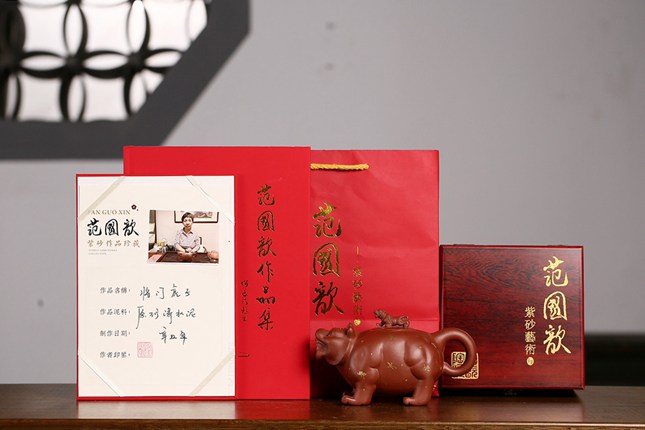 FAN GUO XIN
范國歆
紫砂作品珍藏
作品名稱：将门虎子
作品泥料：原矿清水泥
制作日期：辛丑年
作者印鉴：
范國歆作品集
范國歆
紫砂藝術
范國歆
紫砂藝術